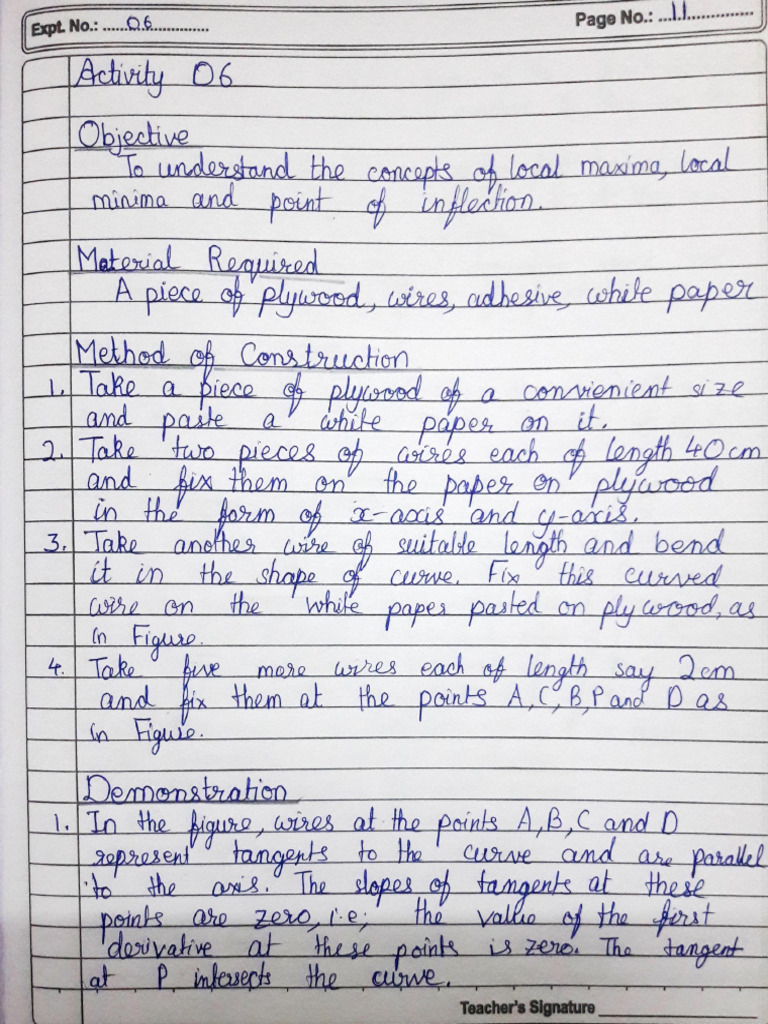 Expt. No.: ......06.............
Page No.: ...11...............
Activity 06
Objective
To understand the concepts of local maxima, local
minima and point of inflection.
Material Required
A piece of plywood, wires, adhesive, white paper
Method of Construction
1. Take a piece of plywood of a convienient size
and paste a white paper on it.
2. Take two pieces of wires each of length 40cm
and fix them on the paper on plywood
in the form of x-axis and y-axis.
3. Take another wire of suitable length and bend
it in the shape of curve. Fix this curved
wire on the white paper pasted on plywood, as
in Figure.
4. Take five more wires each of length say 2cm
and fix them at the points A, C, B, P and D as
in Figure.
Demonstration
1. In the figure, wires at the points A, B, C and D
represent tangents to the curve and are parallel
to the axis. The slopes of tangents at these
points are zero, i.e; the value of the first
derivative at these points is zero. The tangent
at P intersects the curve.
Teacher's Signature